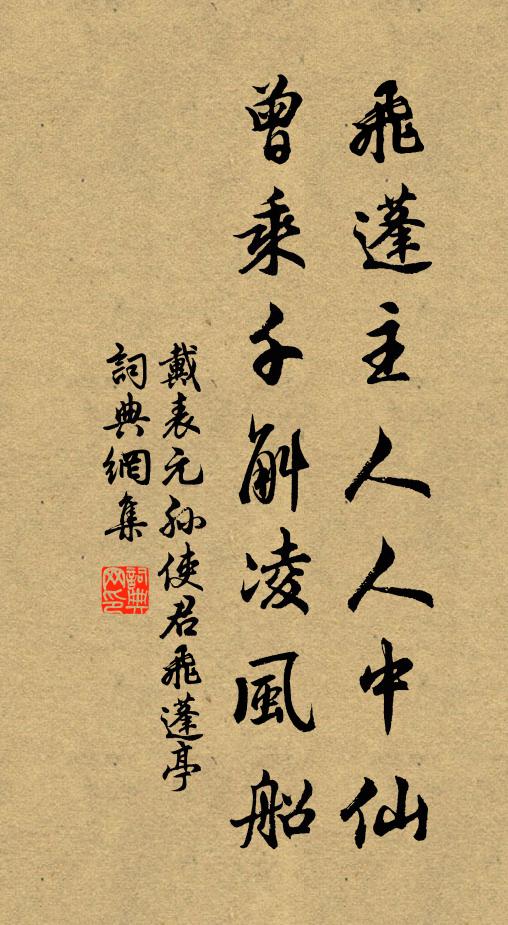 飛蓬主人人中仙
曾乘千斛凌風船
戴表元孫使君飛蓬亭
詞典網集
詞典网印